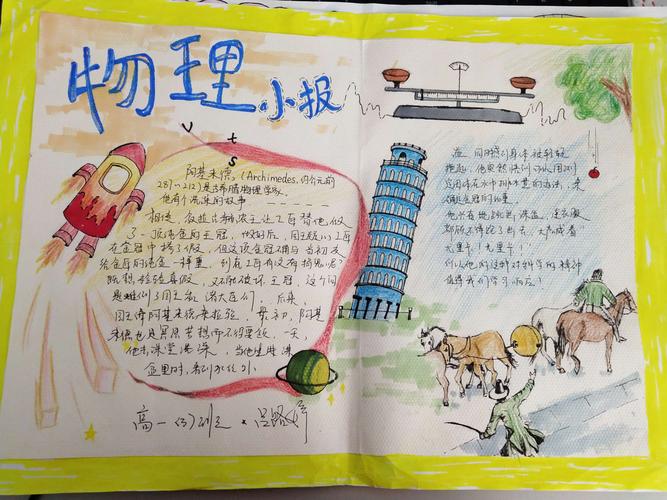 物理小报
V t s
阿基米德(Archimedes,约公元前
287~212)是古希腊物理学家。
他有个流传的故事
相传叙拉古赫农王让工匠替他做
了一顶纯金的王冠,做好后,国王疑心工匠
在金冠中掺了假,但这顶金冠确与当初交
给金匠的纯金一样重,到底工匠有没有捣鬼呢?
既想检验真假,又不能破坏王冠,这个问
题难倒了国王和诸大臣们,后来,
国王请阿基米德来检验,最初,阿基
米德也是冥思苦想而不得要领,一天,
他去澡堂洗澡,当他坐进澡
盆里时,看到水往外
溢,同时感到身体被轻轻
拖起,他突然悟到可以用测
固体在水中排水量的办法,来
确定金冠的比重
他兴奋地跳出澡盆,连衣服
都顾不得跑了出去,大声喊着“
尤里卡!尤里卡!”
所以他的这种对科学的精神
值得我们学习
高一(3)班